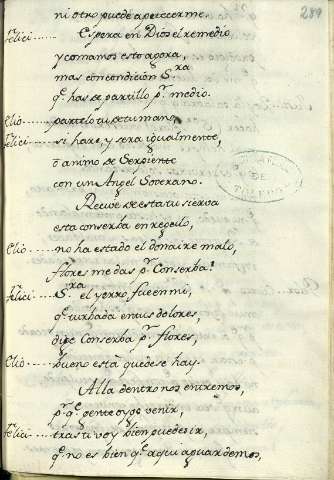 ni otro puede apetecerme.
felici...... Espera en Dios el remedio 289
y comamos esto agora,
mas con condición S.ra
q.e has de partillo p.r medio.
Clio...... partelo tu de tu mano,
felici...... si hare, y sera igualmente,
o animo de Serpiente
con un Angel Soverano.
Recive de esta tu sierva
esta conserba en
Clio...... no ha estado el donaire malo,
flores me das p.r Conserba?
felici...... S.ra el yerro fue en mi,
q.e turbada en tus dolores,
dije Conserba p.r flores,
Clio...... bueno está quedese hay.
Alla dentro nos entremos,
p.r q.e gente oygo venir,
felici...... tras ti voy bien puedes ir,
q.e no es bien q.e aqui aguardemos,
DE
TOLEDO